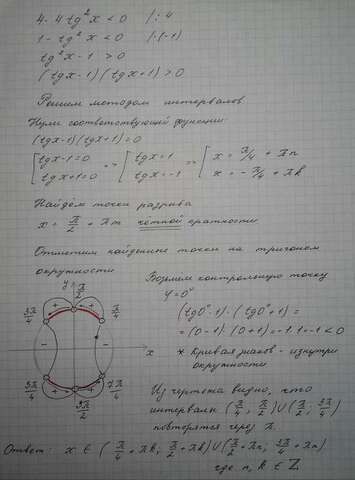 4 - 4tg²x < 0 /:4
1 - tg²x < 0 /·(-1)
tg²x - 1 > 0
(tgx-1)(tgx+1) > 0
Решим методом интервалов
Нули соответствующей функции:
(tgx-1)(tgx+1)=0
[ tgx-1=0 => [ tgx=1 => [ x = π/4 + πn
tgx+1=0 tgx=-1 x = -π/4 + πk
Найдём точки разрыва
x = π/2 + πm чётной кратности
Отметим найденные точки на тригоном.
окружности
Возьмем контрольную точку
y=0°
(tg0°-1)·(tg0°+1)=
=(0-1)·(0+1)=-1·1=-1<0
* кривая знаков - изнутри
окружности
y π/2
3π/4 + + π/4
- - x
5π/4 + + 7π/4
3π/2
Из чертежа видно, что
интервалы (π/4; π/2)∪(π/2; 3π/4)
повторятся через π.
Ответ: x ∈ (π/4+πk; π/2+πk)∪(π/2+πn; 3π/4+πn)
где n, k ∈ Z